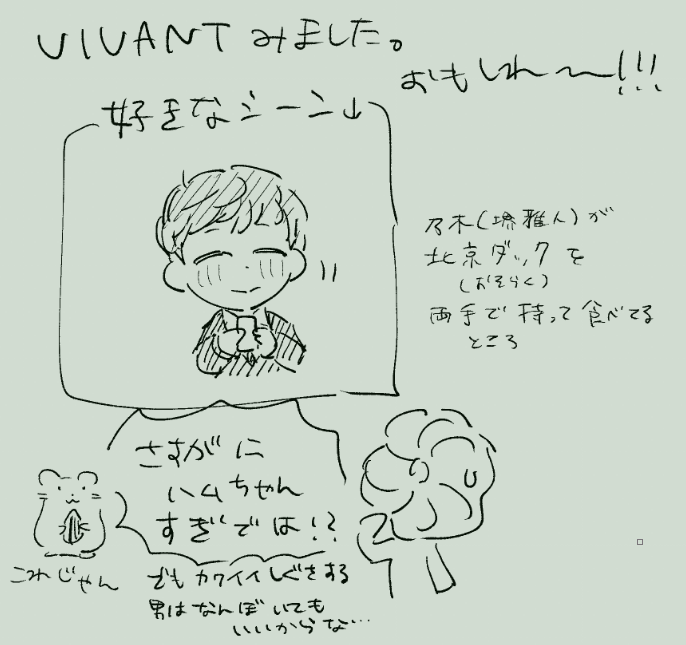 VIVANTみました。
おもしれ〜〜!!!
好きなシーン↓
乃木(堺雅人)が
北京ダックを
(おそらく)
両手で持って食べてる
ところ
さすがに
ハムちゃん
すぎでは!?
これじゃん
でもカワイイしぐさする
男はなんぼいても
いいからな…